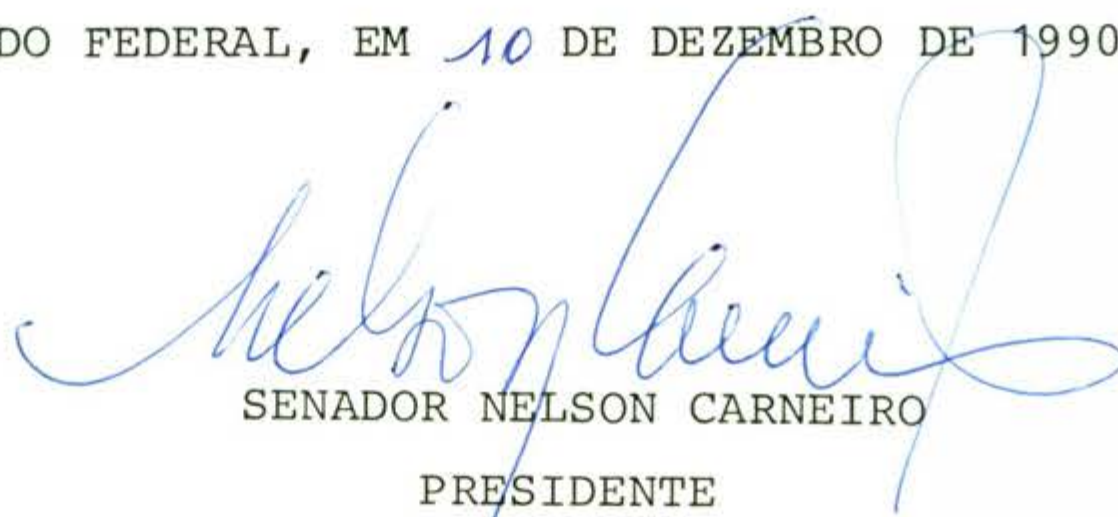 DO FEDERAL, EM 10 DE DEZEMBRO DE 1990
Nelson Carneiro
SENADOR NELSON CARNEIRO
PRESIDENTE